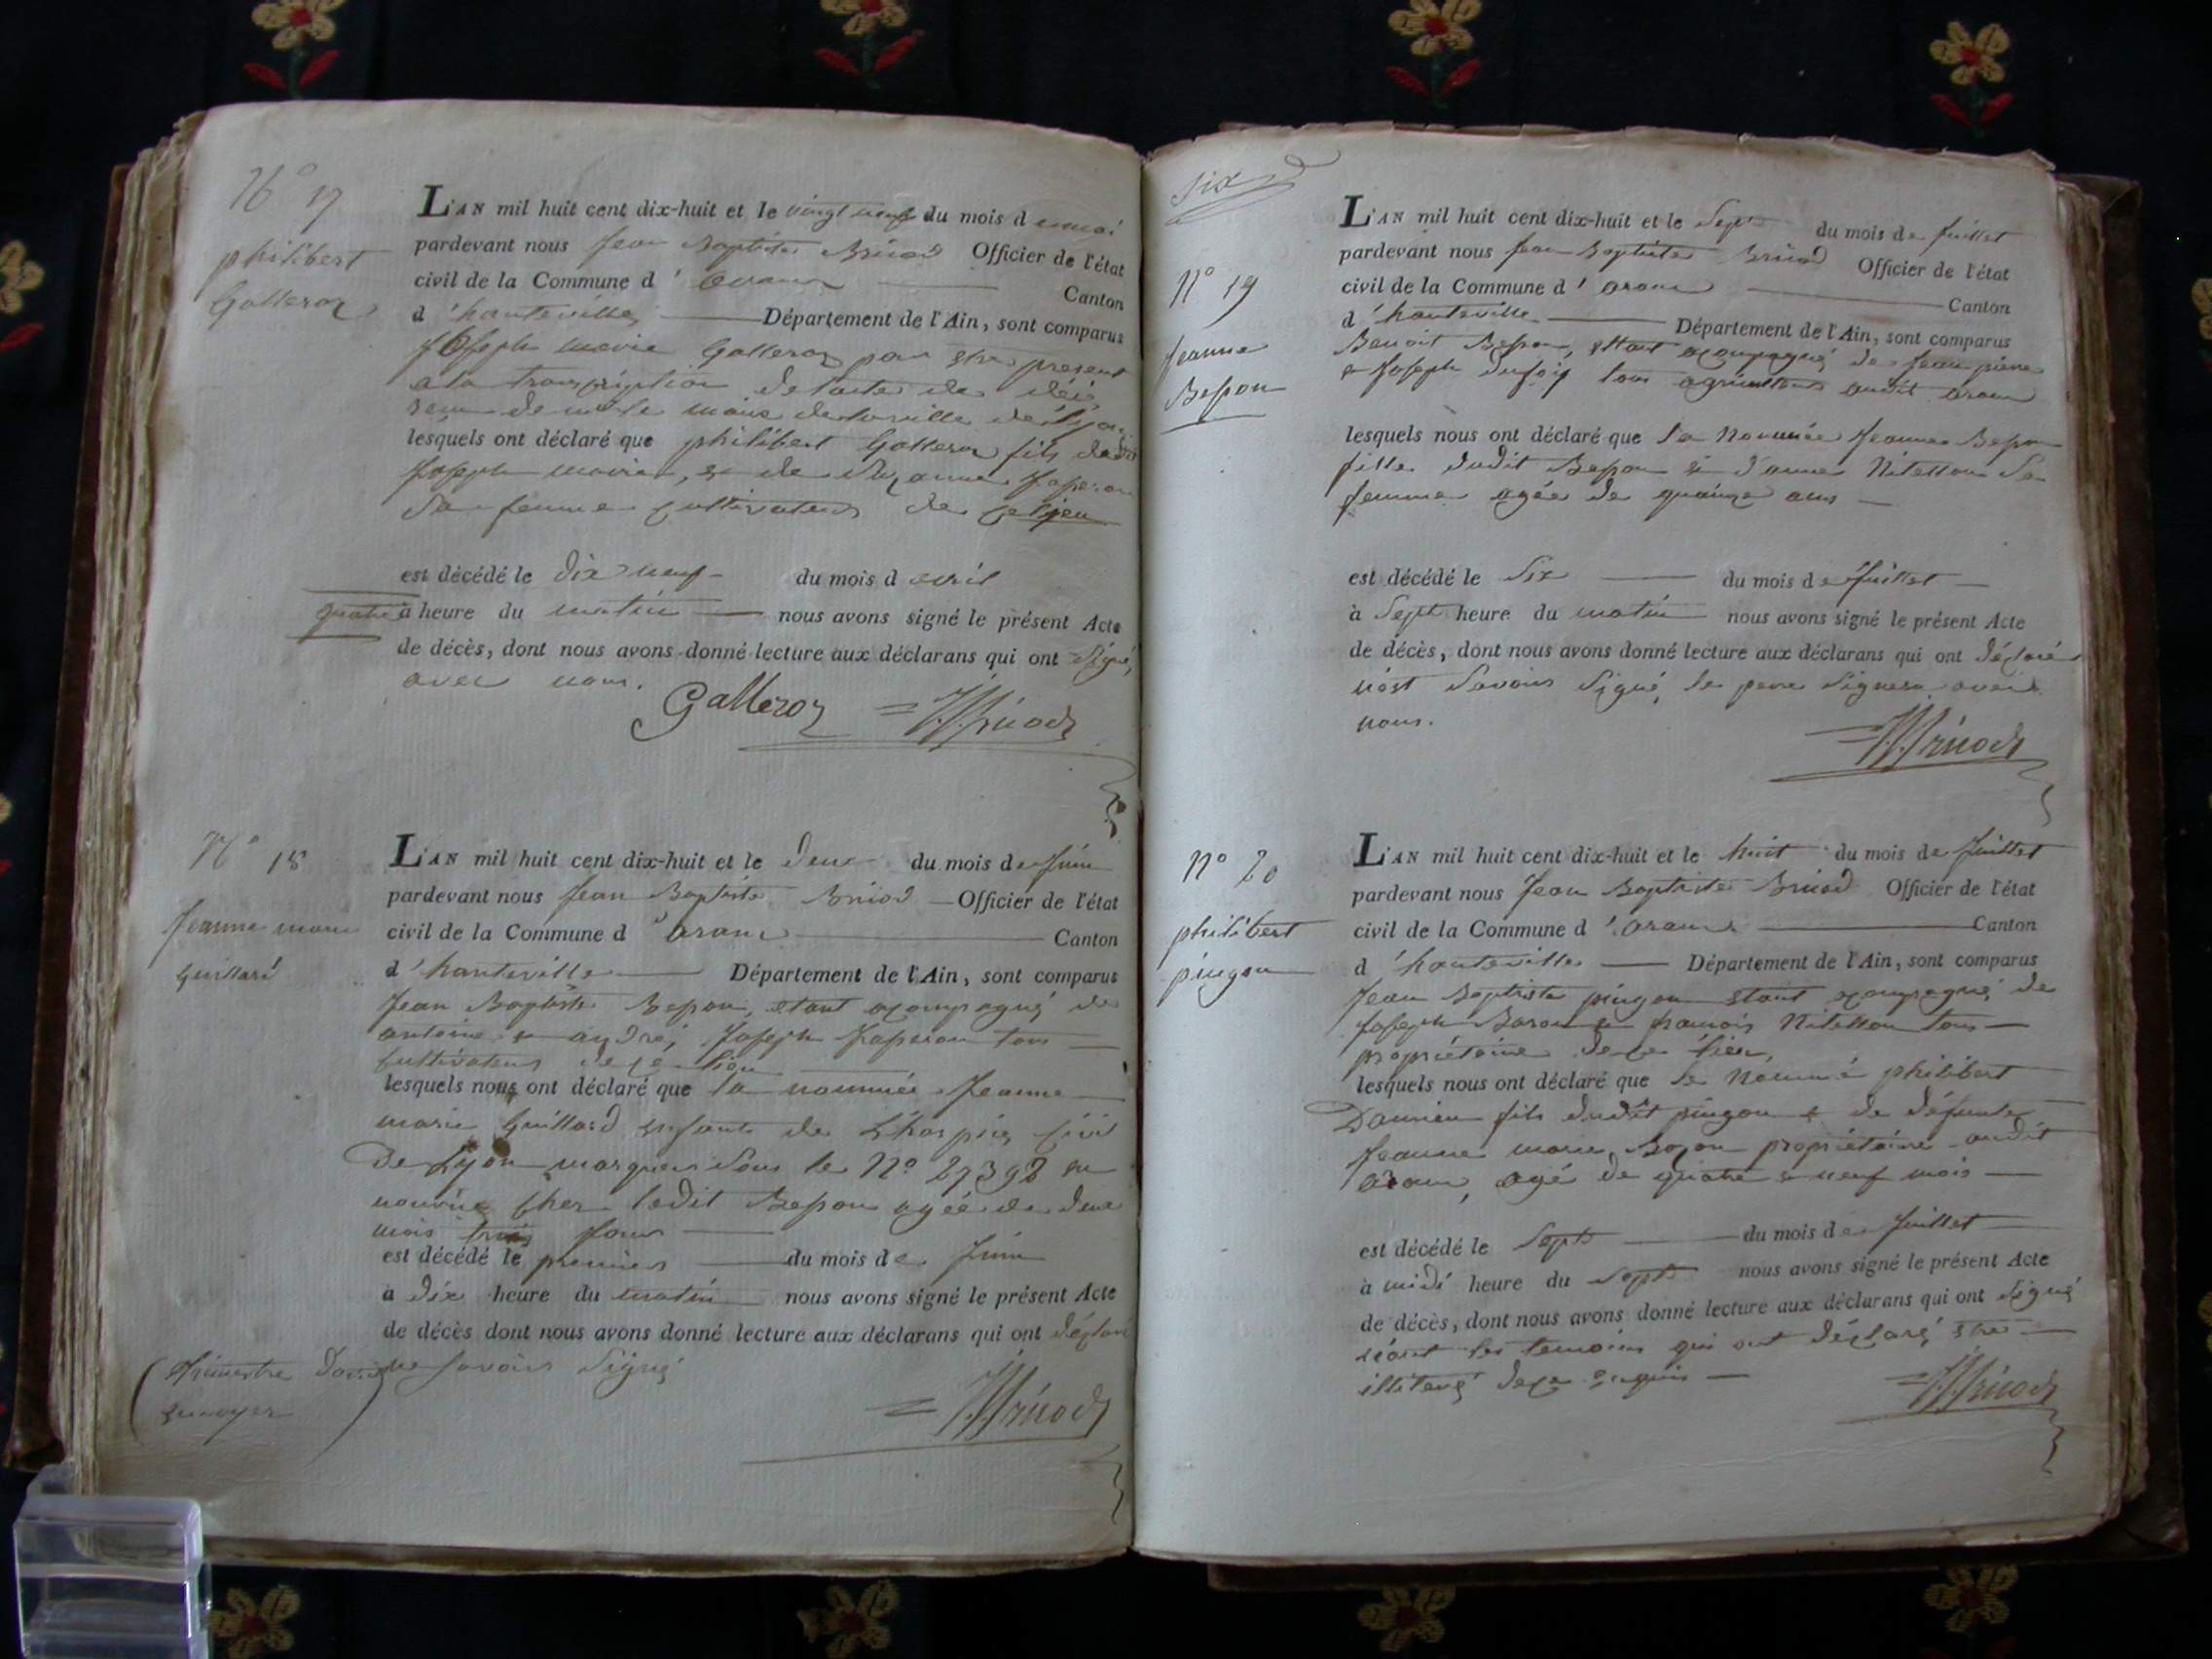 N° 17
philibert
Galleroz
L'AN mil huit cent dix-huit et le vingt neuf du mois d
pardevant nous Jean Baptiste Bruod Officier de l'état
civil de la Commune d' aranc Canton
d'hauteville Département de l'Ain, sont comparus
Joseph marie Galleroz pour etre present
a la transcription de lacte de
maire de la ville de
lesquels ont déclaré que philibert Galleroz fils dudit
Joseph marie, et de
Sa femme cultivateurs de ce lieu
est décédé le dix neuf du mois d avril
quatre à heure du matin nous avons signé le présent Acte
de décès, dont nous avons donné lecture aux déclarans qui ont Signé,
avec nous.
Galleroz Bruod
N° 18
Jeanne marie
Guillard
L'AN mil huit cent dix-huit et le deux du mois de Juin
pardevant nous Jean Baptiste Bruod Officier de l'état
civil de la Commune d' aranc Canton
d'hauteville Département de l'Ain, sont comparus
Jean Baptiste Besson, etant acompagné de
antoine et andré, Joseph tous
cultivateurs de ce lieu
lesquels nous ont déclaré que la nommée Jeanne
marie Guillard enfant de civil
De Lyon sous le N° 27392 en
nourrice cher ledit Besson agée de deux
mois trois jour
est décédé le premier du mois de Juin
à dix heure du matin nous avons signé le présent Acte
de décès dont nous avons donné lecture aux déclarans qui ont déclaré
ne savoir Signé
(trimestre
envoyer)
Bruod
Six
N° 19
Jeanne
Besson
L'AN mil huit cent dix-huit et le Sept du mois de Juillet
pardevant nous Jean Baptiste Bruod Officier de l'état
civil de la Commune d' aranc Canton
d'hauteville Département de l'Ain, sont comparus
Benoit Besson, ettant acompagné de Jean pierre
et Joseph tous agriculteurs audit aranc
lesquels nous ont déclaré que la Nommée Jeanne Besson
fille dudit Besson et d'anne Sa
femme agée de quainze ans
est décédé le Six du mois de Juillet
à Sept heure du matin nous avons signé le présent Acte
de décès, dont nous avons donné lecture aux déclarans qui ont déclaré
Savoir Signé, le pere Signera avec
nous.
Bruod
N° 20
philibert
pingon
L'AN mil huit cent dix-huit et le huit du mois de Juillet
pardevant nous Jean Baptiste Bruod Officier de l'état
civil de la Commune d' aranc Canton
d'hauteville Département de l'Ain, sont comparus
Jean Baptiste pingon etant acompagné de
Joseph et francois tous
propriétaire de ce lieu,
lesquels nous ont déclaré que le Nommé philibert
fils dudit pingon et de défunte
Jeanne marie propriétaire audit
aranc, agé de quatre et neuf mois
est décédé le Sept du mois de Juillet
à midi heure du Sept nous avons signé le présent Acte
de décès, dont nous avons donné lecture aux déclarans qui ont Signé
les temoins qui ont déclaré etre
Bruod